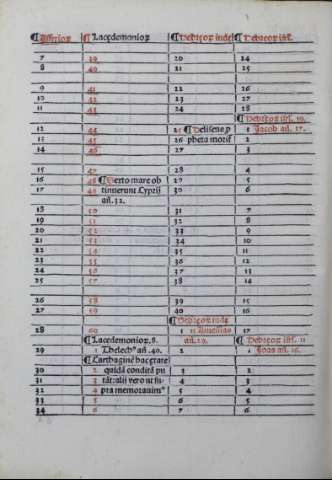 ¶ Assyrioꝝ ¶ Lacedemonioꝝ ¶ Hebreoꝝ iude ¶ Hebreoꝝ isrl.
7 39 20 24
8 40 21 25
9 41 22 26
10 42 23 27
11 43 24 28
¶ Hebreoꝝ isrl. 10.
12 44 25 ¶ Heliseus ꝓ 1 Jacob añ. 17.
13 45 26 pheta morit 2
14 46 27 3
15 47 28 4
16 48 ¶ Sexto mare ob 29 5
17 49 tinuerunt Cyprij 30 6
añ. 32.
18 50 31 7
19 51 32 8
20 52 33 9
21 53 34 10
22 54 35 11
23 55 36 12
24 56 37 13
25 57 38 14
26 58 39 15
27 59 40 16
¶ Hebreoꝝ iude
28 60 11 Amasias 17
¶ Lacedemonioꝝ. 8. añ. 29. ¶ Hebreoꝝ isrl. 11
29 1 Thelech⁹ añ. 40. 2 1 Joas añ. 16.
¶ Carthaginē hac ętate
30 2 quidā conditā pu 3 2
31 3 tāt: alij vero ut su 4 3
32 4 pra memorauim⁹ 5 4
33 5 6 5
34 6 7 6